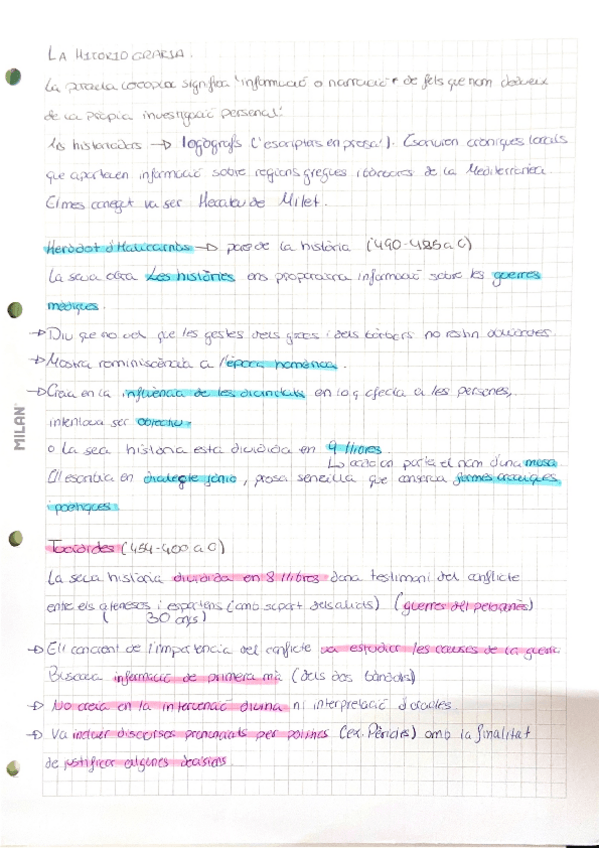 LA HISTORIOGRAFIA.
La paraula ιστορία significa "informació o narració" de fets que hom obtever
de la pròpia investigació personal".
Els historiadors → logògrafs ("escriptors en prosa"). Escrivien cròniques locals
que aportaven informació sobre regions gregues i bàrbares de la Mediterrània.
El més conegut va ser Hecateu de Milet.
Heròdot d'Halicarnàs → pare de la història (490-425 a C)
La seva obra Les històries ens proporciona informació sobre les guerres
mèdiques.
→ Diu que no vol que les gestes dels grecs i dels bàrbars no restin oblidades.
→ Mostra reminiscència a l'època homèrica.
→ Creu en la influència de les divinitats en lo q afecta a les persones,
intentava ser objectiu.
o La seva història està dividida en 9 llibres
↳ cada un porta el nom d'una musa
Ell escribia en dialecte jònic, prosa senzilla que conserva formes arcaiques
i poètiques.
Tucídides (454-400 a C)
La seva història dividida en 8 llibres dona testimoni del conflicte
entre els atenesos i espartans (amb suport dels aliats) (guerres del peloponès)
( 30 anys)
→ Ell conscient de l'importància del conflicte va estudiar les causes de la guerra
Buscava informació de primera mà (dels dos bàndols)
→ No creia en la intervenció divina ni interpretació d'oracles.
→ Va incluir discursos pronunciats per polítics (ex. Pèricles) amb la finalitat
de justificar algunes decisions
MILAN